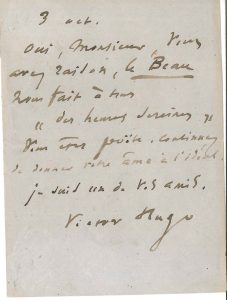 3 oct.
Oui, Monsieur, vous
avez raison, le Beau
nous fait à tous
« des heures sereines »
Vous êtes poëte. Continuez
de donner votre âme à l'idéal.
je suis un de vos amis.
Victor Hugo